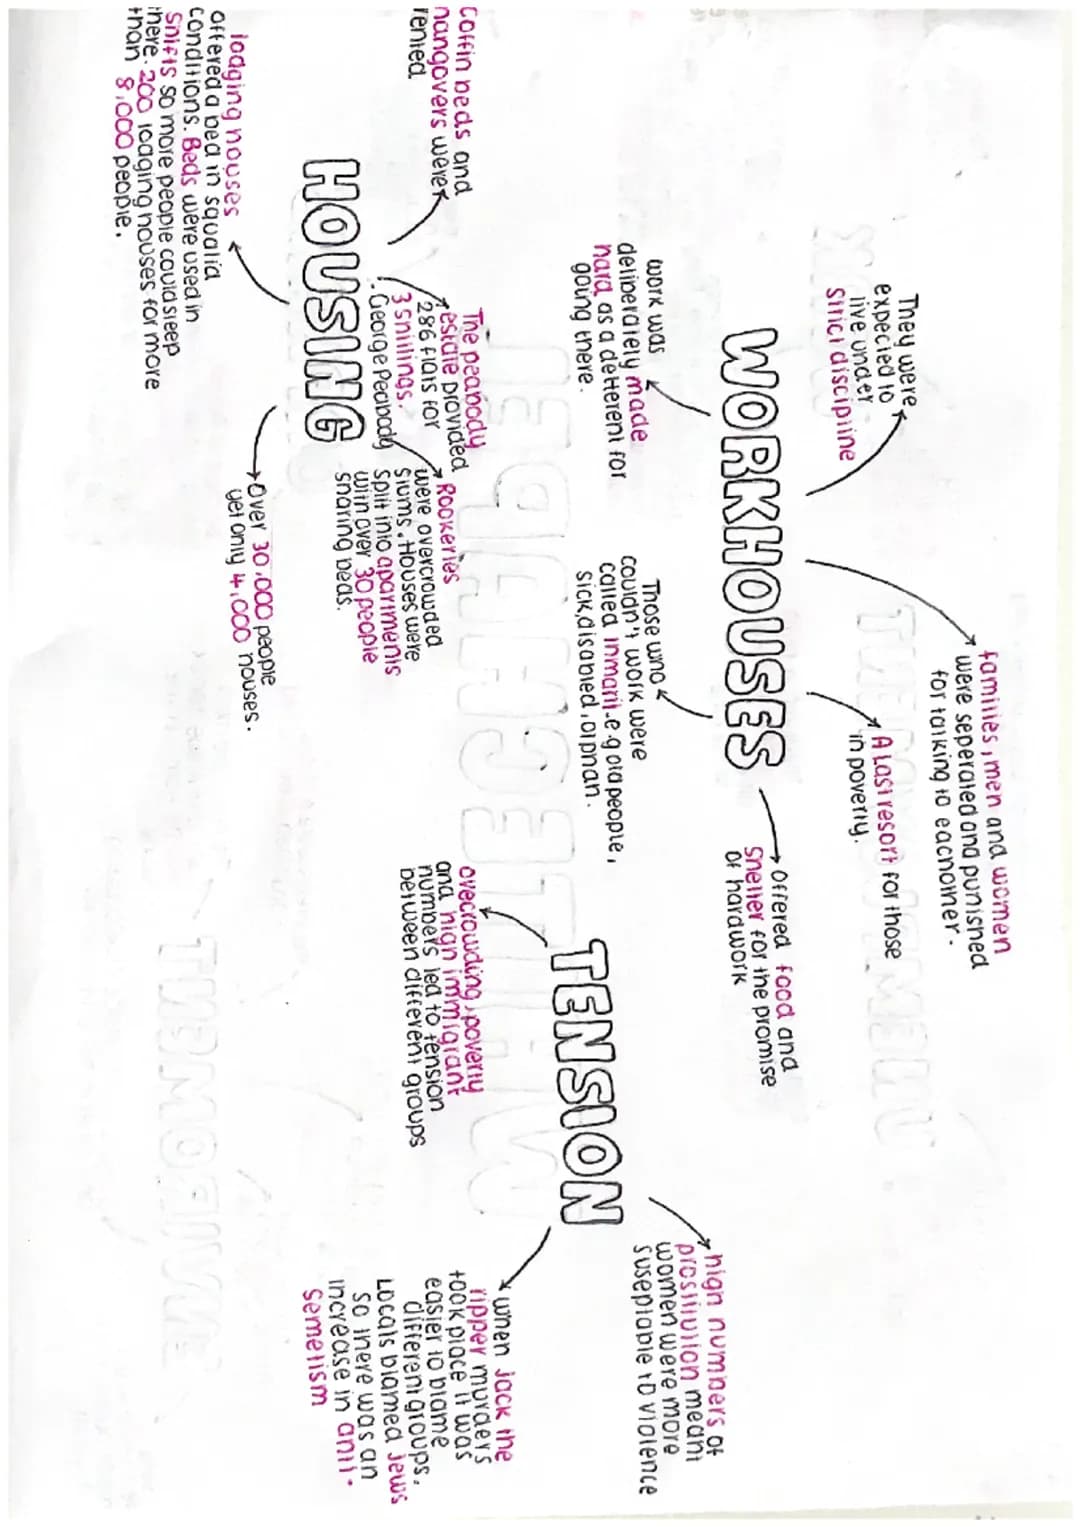 WORKHOUSES
They were
expected to
live under
strict discipline
families, men and women
were seperated and punished
for talking to eachother.
A last resort for those
in poverty.
offered food and
shelter for the promise
of hardwork
work was
deliberately made
hard as a deterrent for
going there.
Those who
couldn't work were
called inmant. e.g old people,
sick, disabled, orphan.
HOUSING
Coffin beds and
hangovers were
rented
The peabody
estate provided
286 flats for
3 shillings.
George Peabody
Rookeries
were overcrowded
slums. Houses were
split into apartments
with over 30 people
sharing beds.
lodging houses
offered a bed in squalid
conditions. Beds were used in
shifts so more people could sleep
there. 200 lodging houses for more
than 8,000 people.
Over 30,000 people
yet only 4,000 houses.
TENSION
high numbers of
prostitution meant
women were more
suseptable to violence
ovecrowding, poverty
and high immigrant
numbers led to tension
between different groups
when jack the
ripper murders
took place it was
easier to blame
different groups.
Locals blamed Jews
so there was an
increase in anti-
semetism